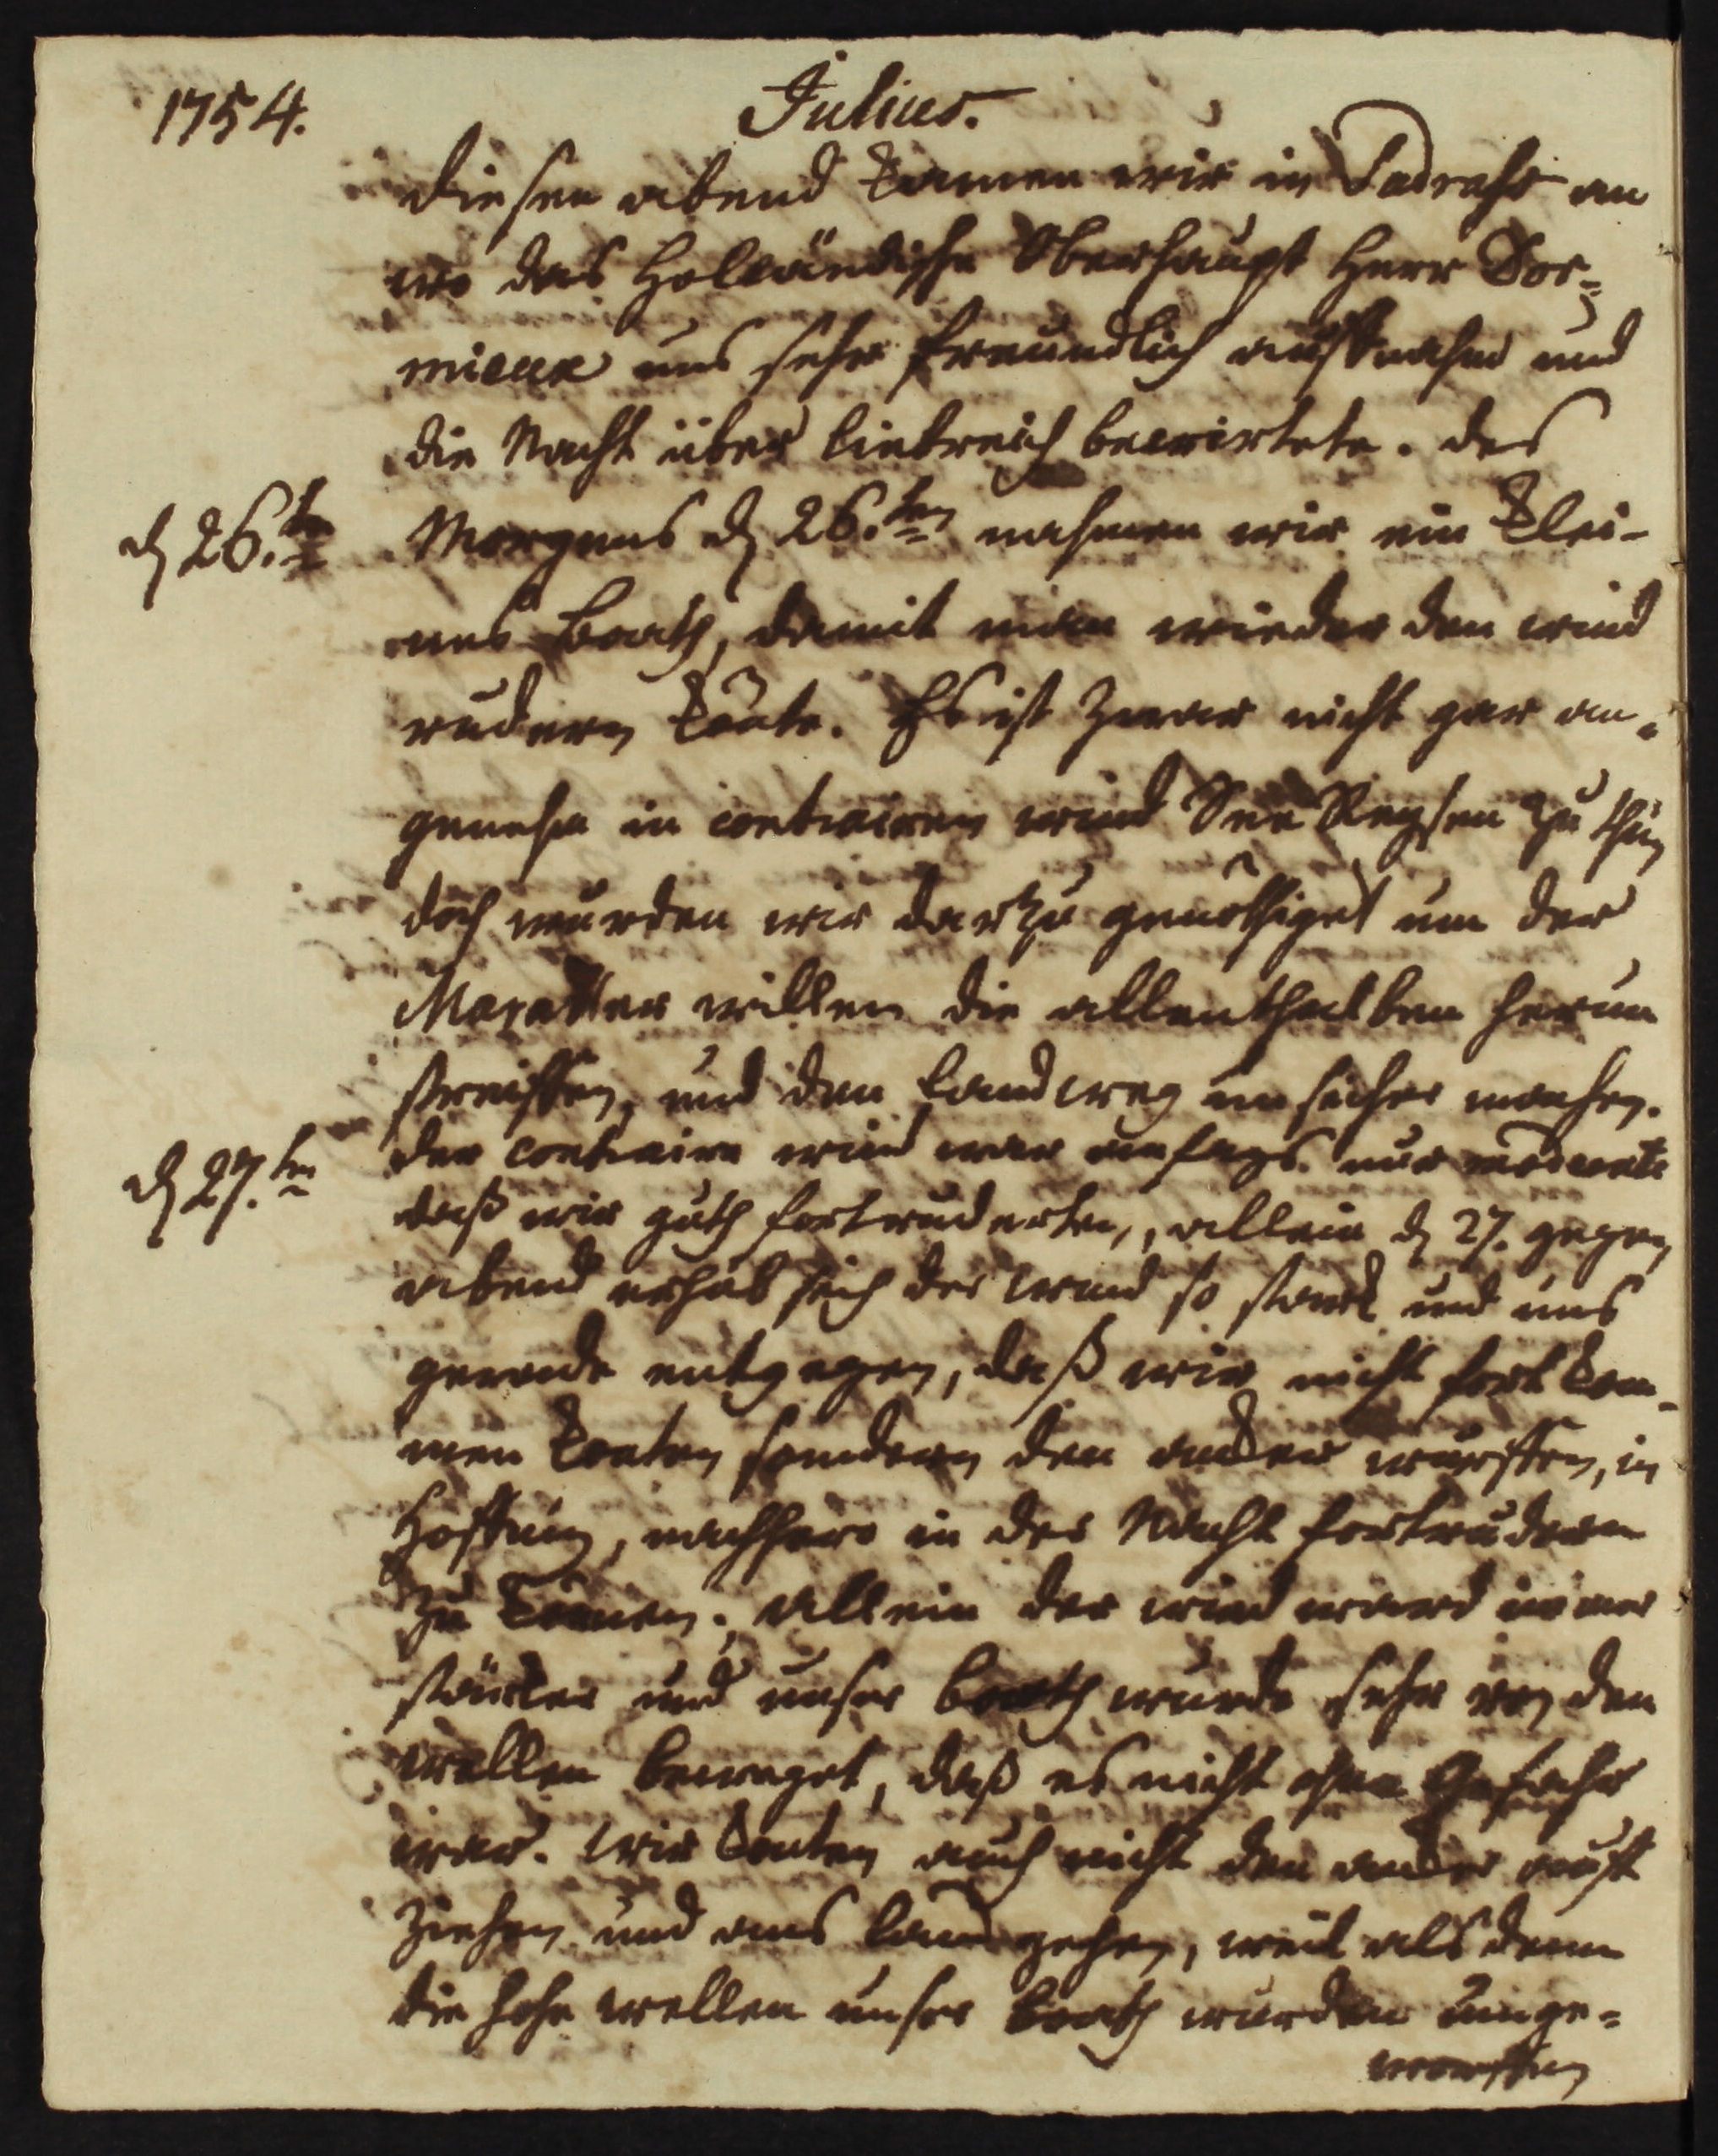 1754. Julius.
diesen abend kamen wir in Sadrass an
wo das Holländische Oberhaupt Herr Dor=
mieux uns sehr freundlich auffnahm und
die Nacht über liebreich bewirtete. Des
d 26.ten Morgens d 26.ten nahmen wir ein klei-
nes Booth, damit man wieder den wind
rudern könte. Es ist zwar nicht gar an=
genehm in contrairen wind See Reysen zu thun
doch wurden wir dartzu genöthiget um der
Maratter willen die allenthalben herum
streiffen, und den Landweg unsicher machen.
d 27.ten der contraire wind war anfangs nur moderate
daß wir guth fortruderten, allein d 27. gegen
abend erhob sich der wind so starck und uns
gerade entgegen, daß wir nicht fort kom=
men konten sondern den ancker wurffen, in
Hoffnung, nachhero in der Nacht fortrudern
zu können; allein der wind ward immer
stärcker und unser Booth wurde sehr von den
wellen beweget, daß es nicht ohne Gefahr
war. Wir konten auch nicht den ancker auff
ziehen und ans land gehen, weil als denn
die hohe wellen unser Booth würden umge=
worffen